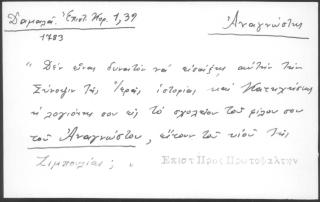 Δαμαλᾶ. Ἐπιστ. Κορ. 1,39 Ἀναγνώστης
1783
"Δὲν εἶναι δυνατὸν νὰ εἰσάξῃς αὐτὴν τὴν
Σύνοψιν τῆς Ἱερᾶς ἱστορίας καὶ Κατηχήσεως
ἡ λογιότης σου εἰς τὸ σχολεῖον τοῦ φίλου σου
τοῦ Ἀναγνώστου, εἴτουν τοῦ υἱοῦ τῆς
Ζιμπουλίας; "
Επιστ Προς Πρωτοψαλτην